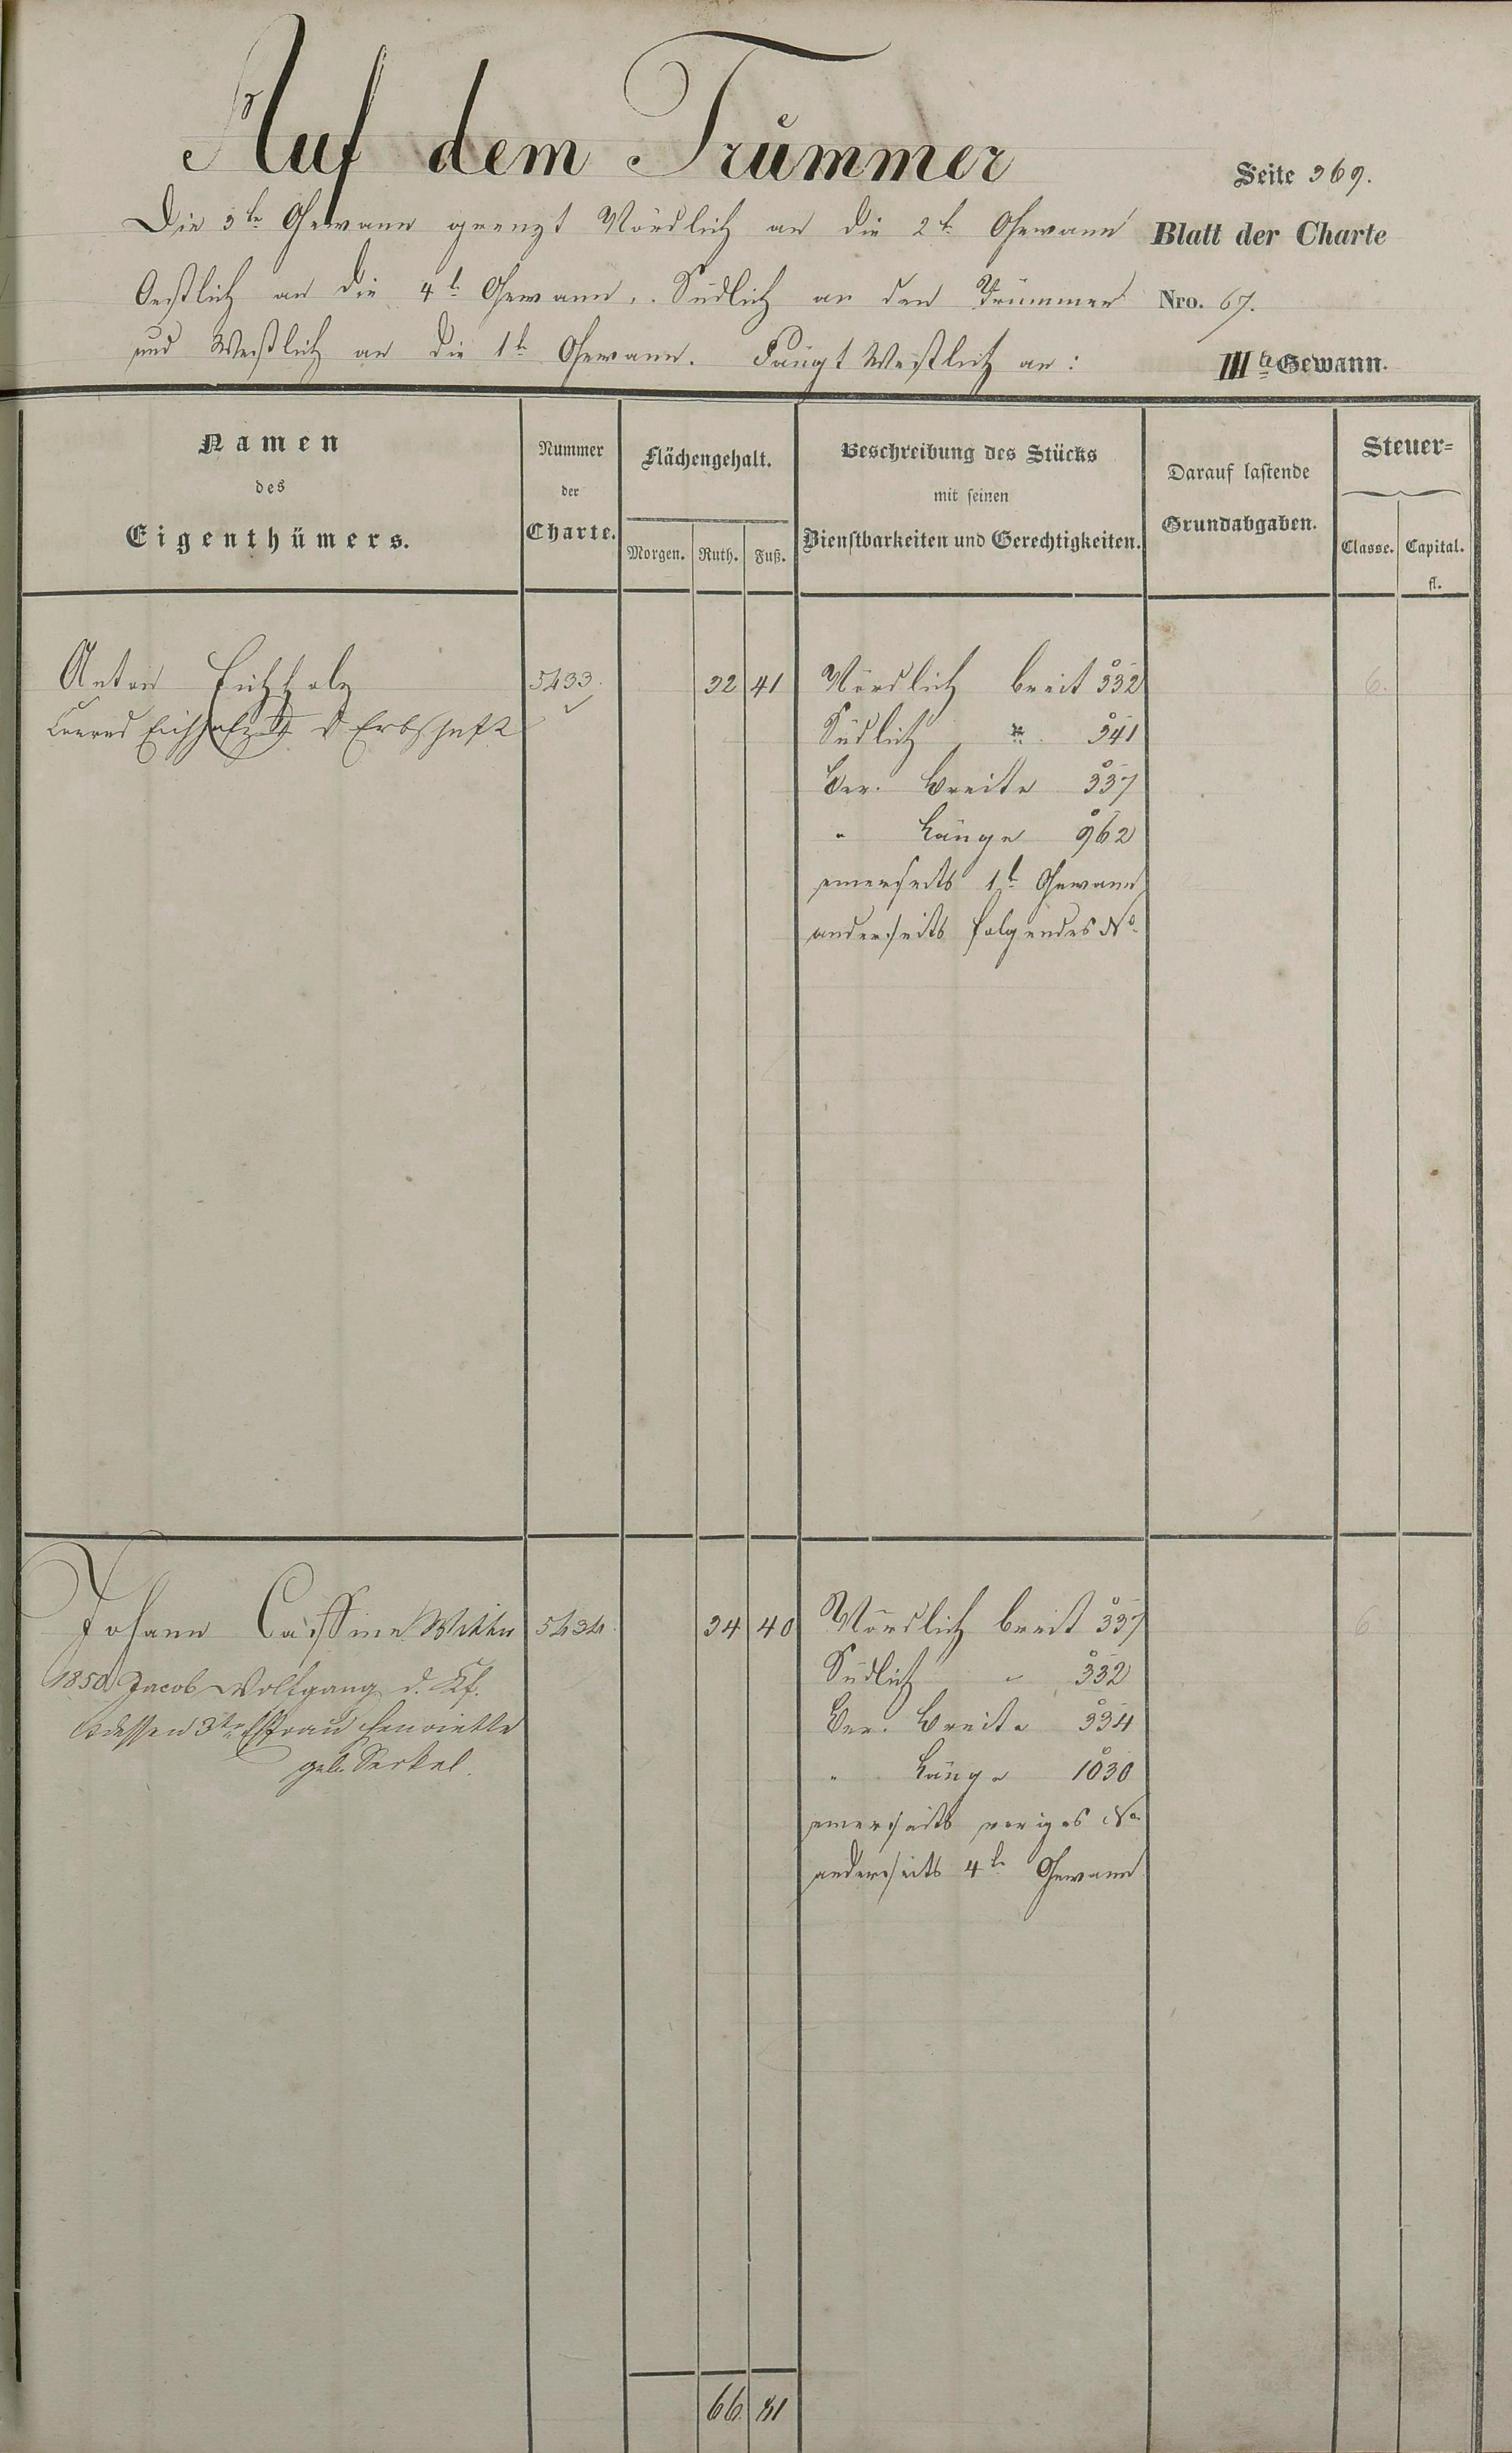 Auf dem Trümmer
Seite 369.
Die 3te Gewann grenzt Nördlich an die 2te Gewann
Blatt der Charte
Oestlich an die 4te Gewann, Südlich an den Trümmer
Nro. 67.
und Westlich an die 1te Gewann. Fängt Westlich an:
IIIte Gewann.
Namen
des
Eigenthümers.
Nummer
der
Charte.
Flächengehalt.
Morgen. Ruth. Fuß.
Beschreibung des Stücks
mit seinen
Dienstbarkeiten und Gerechtigkeiten.
Darauf lastende
Grundabgaben.
Steuer-
Classe. Capital.
fl.
Anton Eichholz 5433. 32 41 Nördlich breit 332 6.
Conrad Eichholz d Erbschaft Südlich " 341
Ber. Breite 337
" Länge 962
einerseits 1te Gewann
anderseits folgendes No
Johann Cassine Witte 5434. 34 40 Nördlich breit 337 6
1850 Jacob Wolfgang d. Kf. Südlich " 332
dessen 3te Ehfrau Henriette Ber. Breite 334
geb. " Länge 1030
einerseits voriges No
anderseits 4te Gewann
66 81